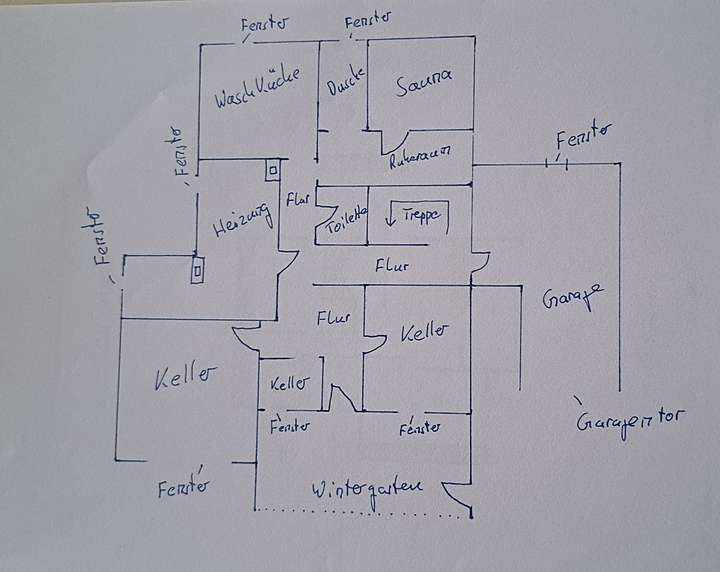 Fenster
Fenster
Waschküche
Dusche
Sauna
Fenster
Fenster
Ruheraum
Flur
Heizung
Toilette
Treppe
Fenster
Flur
Garage
Flur
Keller
Keller
Keller
Garagentor
Fenster
Fenster
Fenster
Wintergarten